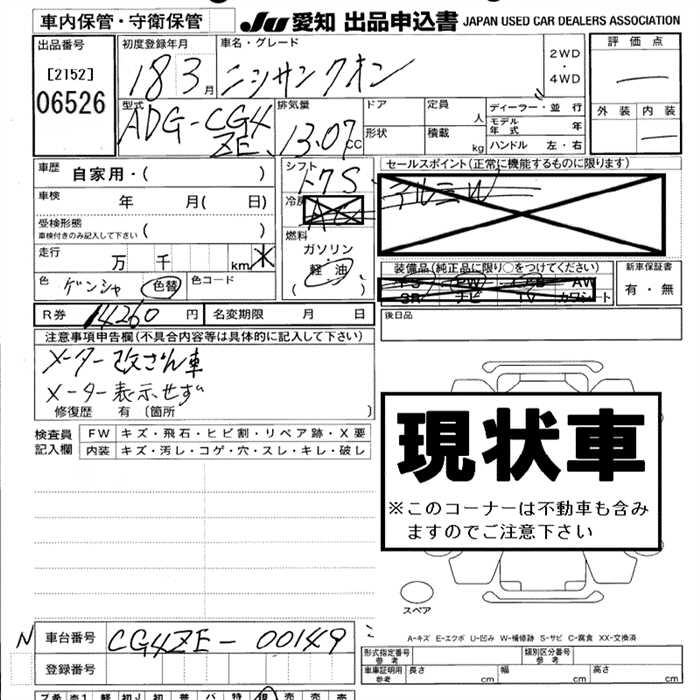 車内保管・守衛保管
JU 愛知 出品申込書 JAPAN USED CAR DEALERS ASSOCIATION
出品番号
[2152]
06526
初度登録年月
18 3 月
車名・グレード
ニッサンクオン
2WD
・
4WD
評価点
外装 内装
型式
ADG-CG4
ZE
排気量
13.07 CC
ドア
定員
人
形状
積載
kg
ディーラー・並行
モデル年式
年
ハンドル 左・右
車歴
自家用・( )
車検
年 月( 日)
受検形態
車検付きのみ記入して下さい
( )
走行
万 千 km
色
ゲンシャ
色替
色コード
シフト
F7S
冷房
AC
燃料
ガソリン・
軽油
( )
セールスポイント(正常に機能するものに限ります)
アルミW
装備品(純正品に限り○をつけてください)
PS PW AB AW
SR ナビ TV カワシート
新車保証書
有・無
R券
14260 円
名変期限 月 日
後日品
注意事項申告欄(不具合内容等は具体的に記入して下さい)
メーター改ざん車
メーター表示せず
修復歴 有〔箇所 〕
検査員
記入欄
FW キズ・飛石・ヒビ割・リペア跡・X要
内装 キズ・汚レ・コゲ・穴・スレ・キレ・破レ
現状車
※このコーナーは不動車も含み
ますのでご注意下さい
スペア
A-キズ E-エクボ U-凹み W-補修跡 S-サビ C-腐食 XX-交換済
N
車台番号
CG4ZE-00149
登録番号
形式指定番号
参考
類別区分番号
参考
車庫証明用
参考
長さ cm
幅 cm
高さ cm